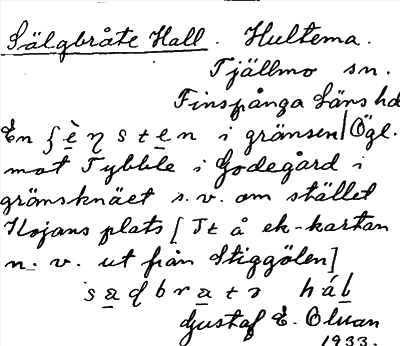 Sälgbråte Hall. Hultema.
Tjällmo sn.
Finspånga Läns hd
En fèŋsten i gränsen Ögl.
mot Tybble i Godegård i
gränsknäet s.v. om stället
Kojans plats [It å ek-kartan
n. v. ut från Stiggölen]
Gustaf E. Olsson
1933.